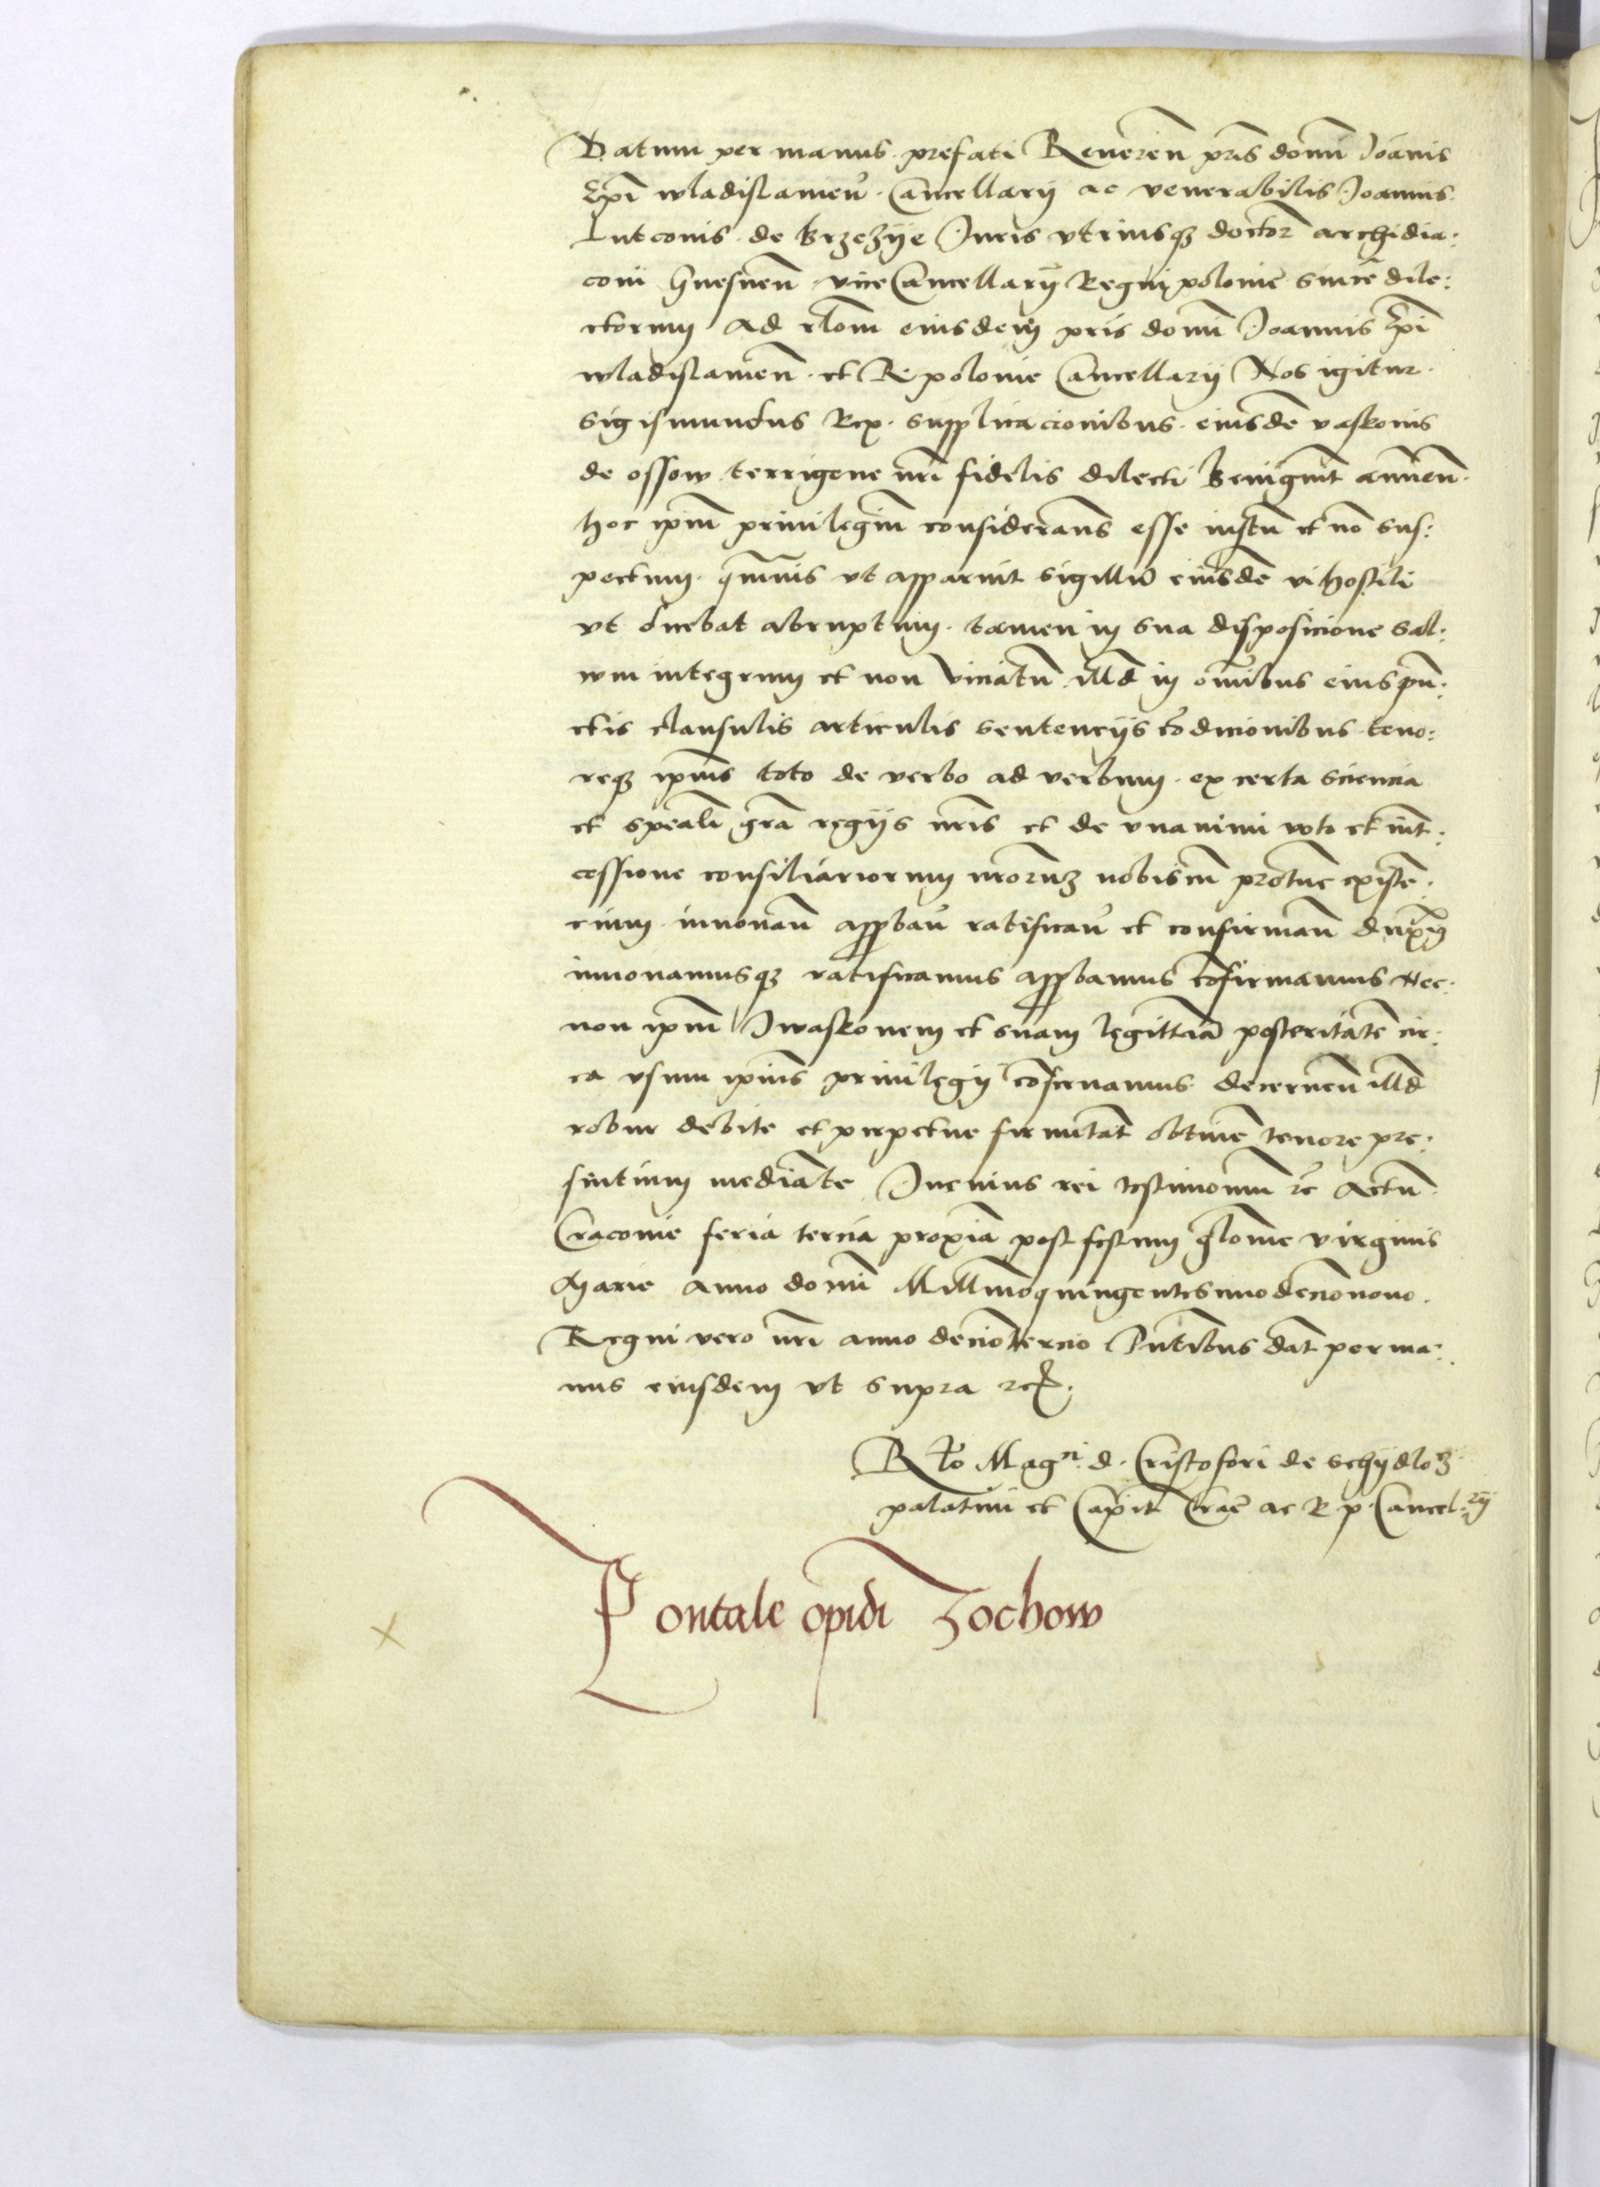 Datum per manus prefati Reveren̄ pr̄is domī Joān̄is
Ep̄i wladislavien̄ Cancellarij ac venerabilis Joannis
Lutconis de Brzezije Juris vtriusqꝫ doctor̄ archidia:
coni Gnesnen̄ vice Cancellarij Regni polonie since dile:
ctorum Ad rl̄om eiusdem pr̄is domī Joannis Ep̄i
wladislavien̄ et R polonie Cancellarij Nos igitur
Sigismundus Rex supplicacionibus eiusdē vaskonis
de ossow terrigene nr̄i fidelis dilecti Benignit̄ annuen̄
hoc ip̄m privilegiū considerans esse iustū et nō sus:
pectum qmvis vt apparuit sigillū eiusdē vi hostili
vt ducebat abruptum tamen in sua disposicione sal:
wm integrum et non viciatū illd̄ in om̄ibus eius pū:
ctis clausulis articulis sentencijs cōdicionibus teno:
reqꝫ ip̄ius toto de verbo ad verbum ex certa sciencia
et speali gr̄a regijs nr̄is et de vnanimi voto et int̄:
cessione consiliariorum nr̄orumꝫ nobiscū protunc existē:
cium innovan̄ approbav̄ ratificav̄ et confirman̄ duxim̄
innovamusqꝫ ratificamus approbamus cōfirmamus Nec:
non ip̄m Iwaskonem et suam legittiā posteritatē cir:
ca vsum ip̄ius privilegij cōservamus decernen̄ illd̄
robur debite et perpetue firmitat̄ obtinē tenore pre:
sentium mediante In cuius rei testimonium ꝛc̄ Actū
Cracovie feria tercia proxiā post festum gl̄ose virginis
Marie Anno domī Millīmoquingentesimodecīononо
Regni vero nr̄i anno deciotercio Pn̄tibus dat̄ per ma:
nus eiusdem vt supra ꝛc̄.
R lō Magci d. Cristofori de schydlowꝫ
palatini et Capit̄ Crac̄ ac R p. Cancel:rij
Pontale opidi Zochow